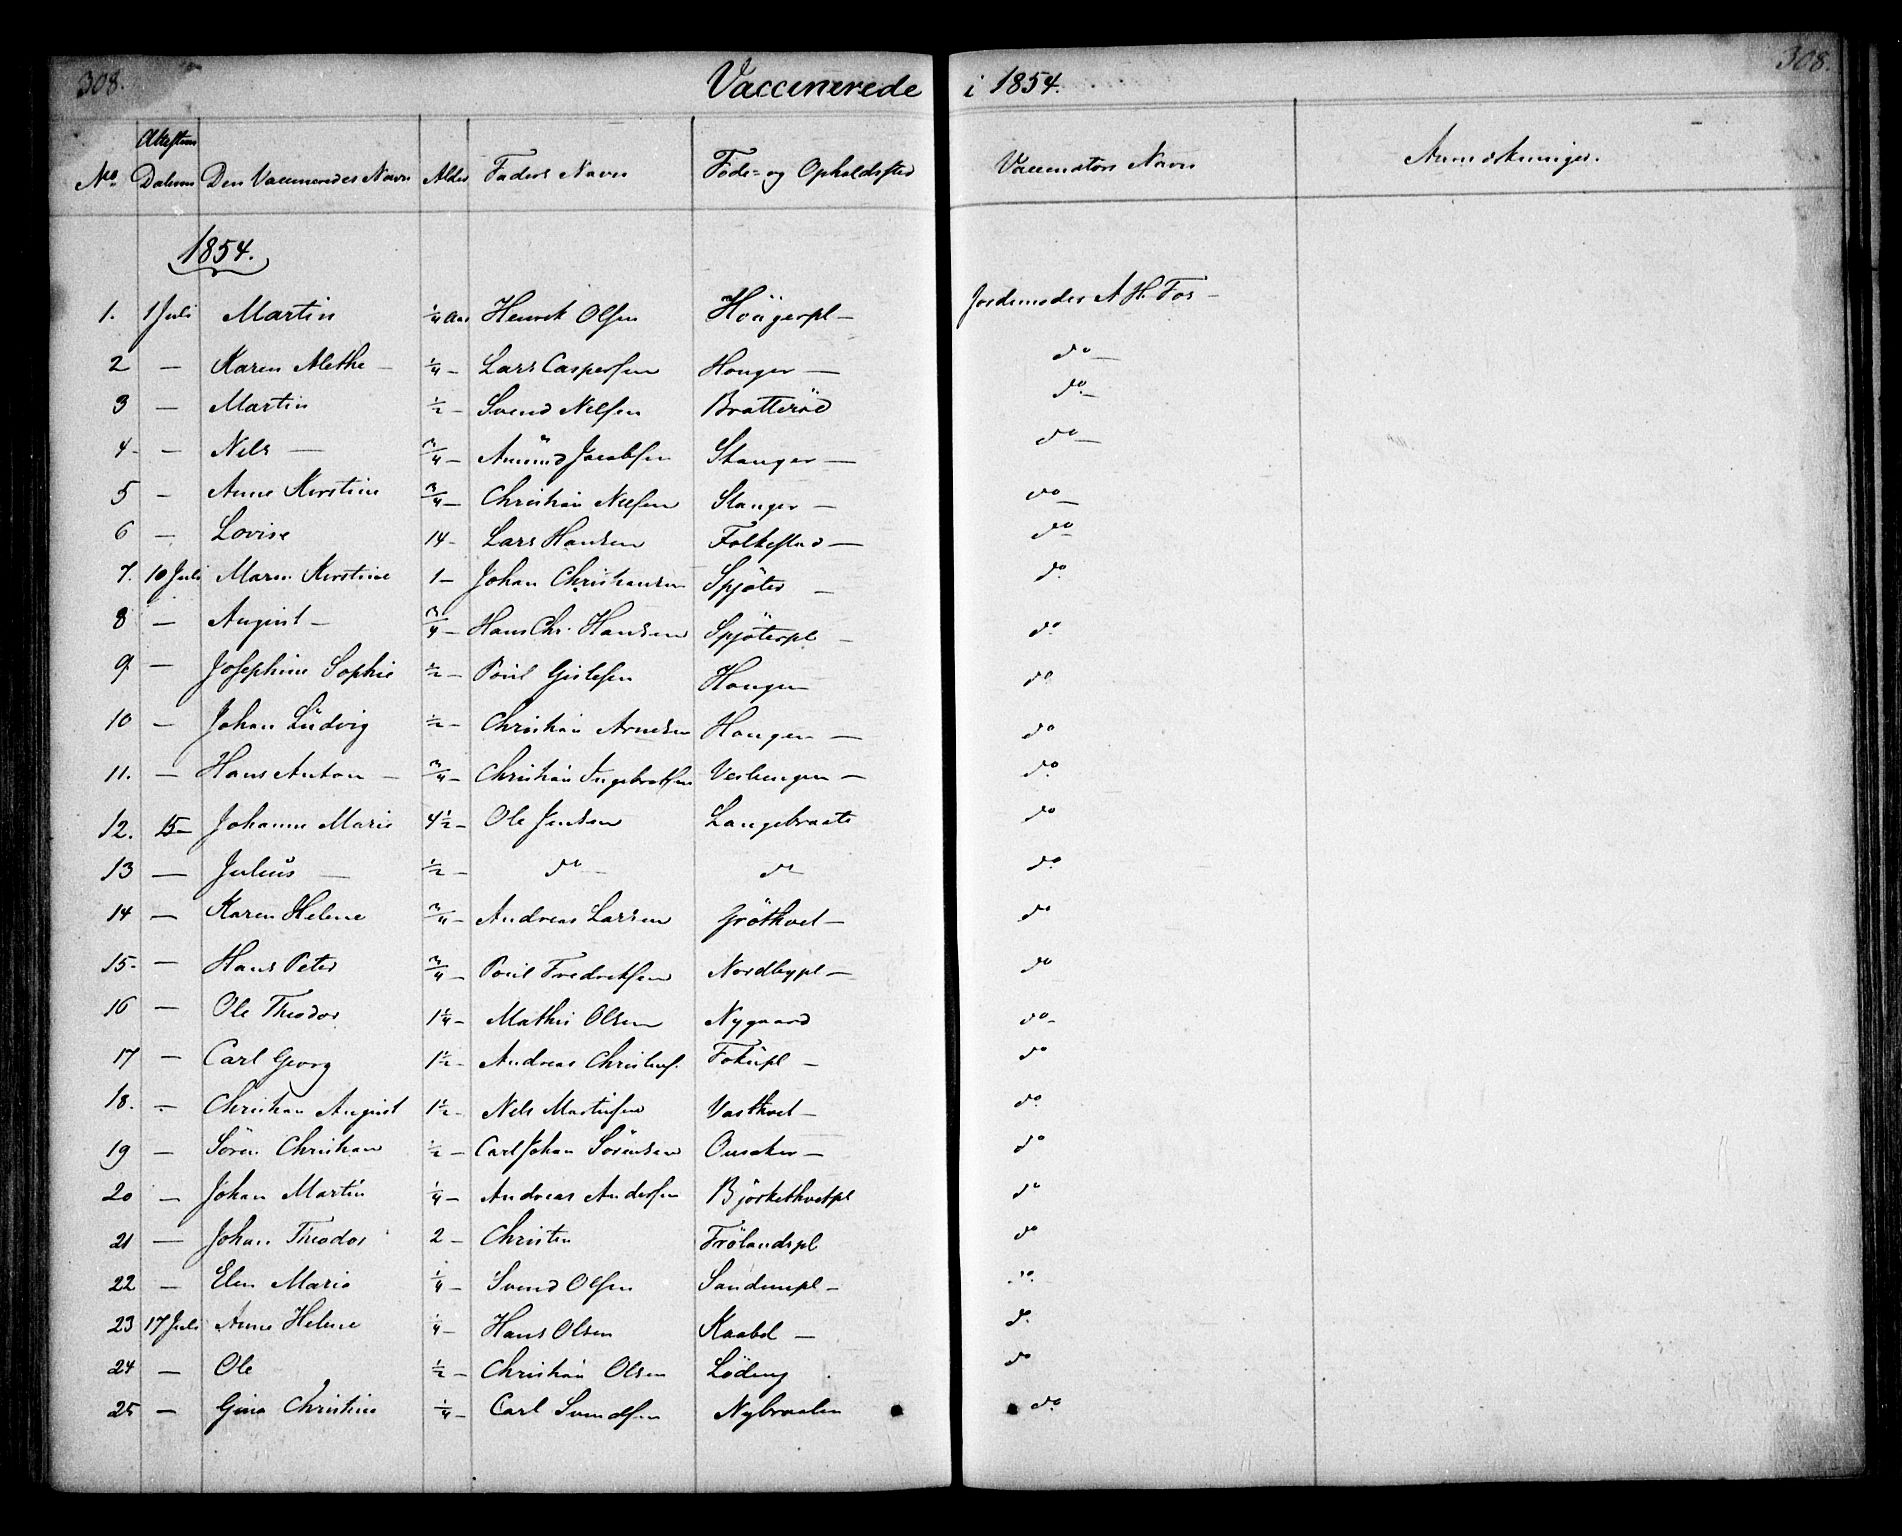 308. Vaccinerede i 1854. 308.
No Attestens Datum Den Vaccineredes Navn Alder Faders Navn Føde= og Opholdssted Vaccinators Navn Anmærkninger.
1854.
1. 1 Juli Martin ¼ Aar Henrik Olsen Höugerpl — Jordemoder A H. Fos —
2 — Karen Alethe — ¼ — Lars Caspersen Houger — do —
3 — Martin ½ — Svend Nilsen Bratteröd do. —
4 — Nels — ¾ — Amünd Jacobsen Stanger — do —
5 — Anne Kirstine ¾ — Christian Nilsen Stanger — do —
6 — Lovise 14 — Lars Hansen Folkestad — do
7. 10 Juli Maren Kirstine 1 — Johan Christiansen Spjöter — do.
8 — August — ¾ — Hans Chr. Hansen Spjöterpl — do.
9. — Josephine Sophie ½ — Poül Gulesen Hougen do.
10 — Johan Lüdvig ½ — Christian Arnesen Hougen — do
11. — Hans Anton — ¾ — Christian Ingebretsen Verlengen — do.
12. 15 — Johanne Marie 4½ — Ole Jensen Langebraate do
13 — Julius — ½ — do — do do.
14 — Karen Helene ¾ — Andreas Larsen Gröthvet — do
15. — Hans Peter ¾ — Poül Fredriksen Nordbypl — do
16 — Ole Theodor 1¼ — Mathis Olsen Nygaard do —
17 — Carl Georg 1½ — Andreas Christens. Foküpl — do
18. — Christian August 1½ — Nels Martinsen Vasthvet — do.
19 — Sören Christian ½ — Carl Johan Sörensen Ousaker — do
20 — Johan Martin ¼ — Andreas Andersen Björkethvetpl do
21 — Johan Theodor 2 — Christen Frölandspl do
22 — Elen Marie ¼ — Svend Olsen Sandempl — do.
23 17 Juli Anne Helene ¼ — Hans Olsen Kaabel — do.
24 — Ole ½ — Christian Olsen Lödeng do
25 — Gina Christine ¼ — Carl Svendsen Nybraaten do.